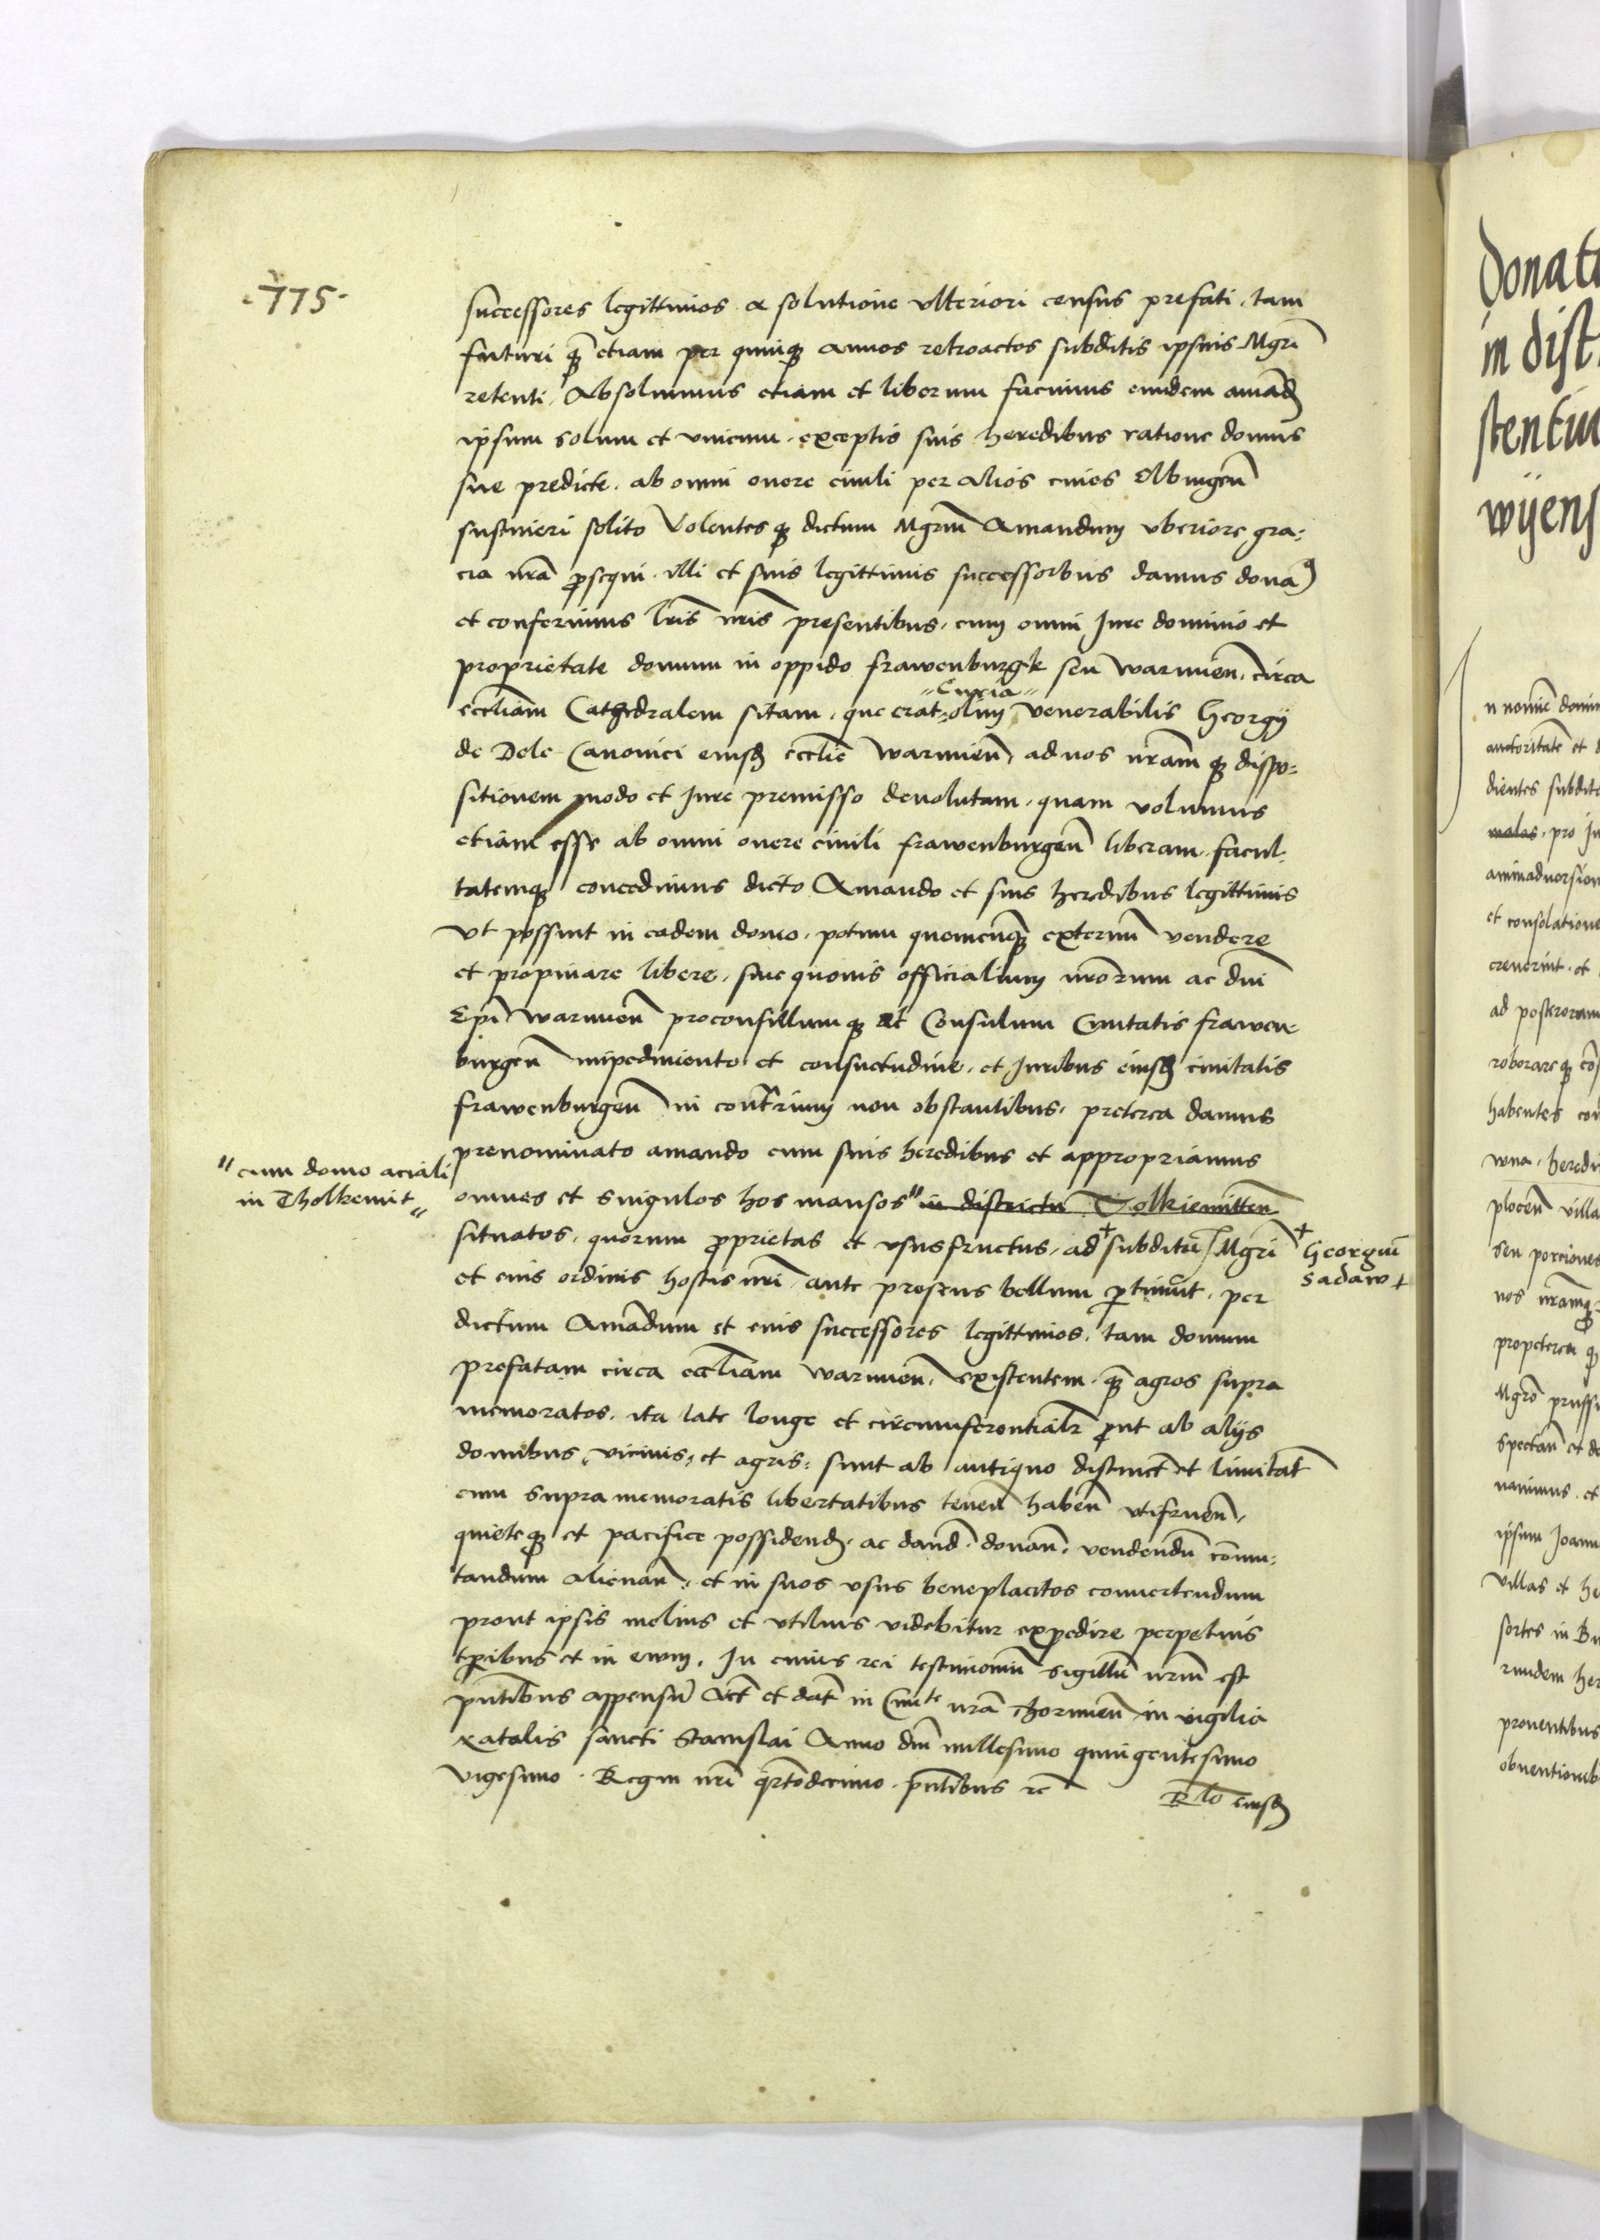 775
successores legittimos a solutione vlteriori census prefati, tam
futuri q̄ etiam per quinq annos retroactos subditis ipsius Mgri
retenti. Absoluimus etiam et liberum facimus eundem amand
ipsum solum et vnicum. exceptis suis heredibus ratione domus
sue predicte. ab omni onere ciuili per alios ciues Elbingen̄
sustineri solito Volentes q dictum Mgrm̄ Amandum vberiore gra-
cia nrā ꝓsequi. illi et suis legittimis successoribus damus dona
et conferimus lrīs nrīs presentibus. cum omni Jure dominio et
proprietate domum in oppido frawenburgk seu warmien̄. circa
eccliam Cathedralem sitam. que erat "Curia" olim venerabilis Georgij
de Dele Canonici eiusd eccliē warmien̄ ad nos nram̄ q dispo-
sitionem modo et Jure premisso deuolutam. quam volumus
etiam esse ab omni onere ciuili frawenburgen̄ liberam. facul-
tatemq concedimus dicto Amando et suis heredibus legittimis
Vt possint in eadem domo. potum quemcunq̄ externum vendere
et propinare libere. sine quouis officialium nrōrum ac dnī
Epī warmien̄ proconsullum q ac Consulum Ciuitatis frawen
burgen̄ impedimento et consuetudine. et Juribus eiusd ciuitatis
frawenburgen̄ in contrarium non obstantibus. preterea damus
prenominato amando cum suis heredibus et appropriamus
"cum domo aciali
in Tholkemit"
omnes et singulos hos mansos " in districtu Tolkiemitten̄
situatos. quorum ꝓprietas et vsusfructus. ad + subditū Mgrī
+ Georgiū
Sadaw +
et eius ordinis hostis nrī ante presens bellum ꝑtinuit. per
dictum Amandum et eius successores legittimos. tam domum
prefatam circa eccliam warmien̄. existentem. q̄ agros supra
memoratos. ita late longe et circumferentialr ꝓut ab alijs
domibus, vicinis, et agris. sunt ab antiquo distinct et limitat
cum supra memoratis libertatibus tenen̄ haben̄ vtifruen̄.
quieteq et pacifice possidend. ac dand. donan̄. vendendū cōmu-
tandum alienan̄. et in suos vsus beneplacitos conuertendum
prout ipsis melius et vtilius videbitur expedire perpetuis
tꝑibus et in euum. In cuius rei testimonium sigillū nrm̄ est
pn̄tibus appensū Act et dat in Ciuite nrā Thorunien̄ in vigilia
natalis sancti Stanislai Anno dnī millesimo quingentesimo
vigesimo. Regni nrī q̄rtodecimo. pn̄tibus rc
Rlo eiusd
Donat
in dist
stentiu
wijens
n nomine domin
auctoritate et
dientes subdit
malos. pro Ju
animaduersion
et consolatione
creuerint. et
ad posterorum
roborareq
habentes con
wna. heredi
plocen̄ villa
seu porciones
nos nramq
propterea q
Mgrō pruss
spectan̄ et
namus. et
ipsum Joann
villas et he
sortes in Bu
eundem her
prouentibus
obuentionib